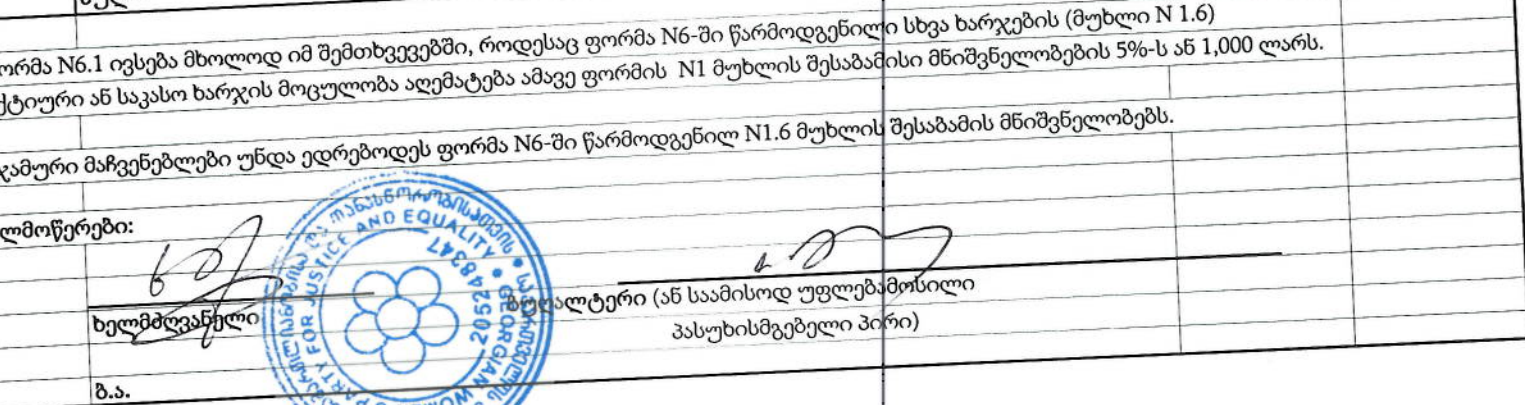 ორმა N6.1 ივსება მხოლოდ იმ შემთხვევებში, როდესაც ფორმა N6-ში წარმოდგენილი სხვა ხარჯების (მუხლი N 1.6)
ქტიური ან საკასო ხარჯის მოცულობა აღემატება ამავე ფორმის N1 მუხლის შესაბამისი მნიშვნელობების 5%-ს ან 1,000 ლარს.
ჯამური მაჩვენებლები უნდა ედრებოდეს ფორმა N6-ში წარმოდგენილ N1.6 მუხლის შესაბამის მნიშვნელობებს.
ლმოწერები:
ხელმძღვანელი
ბუღალტერი (ან საამისოდ უფლებამოსილი
პასუხისმგებელი პირი)
ბ.ა.
და თანასწორობისათვის • საქართველოს
PARTY FOR JUSTICE AND EQUALITY • GEORGIAN WOMEN
205248347